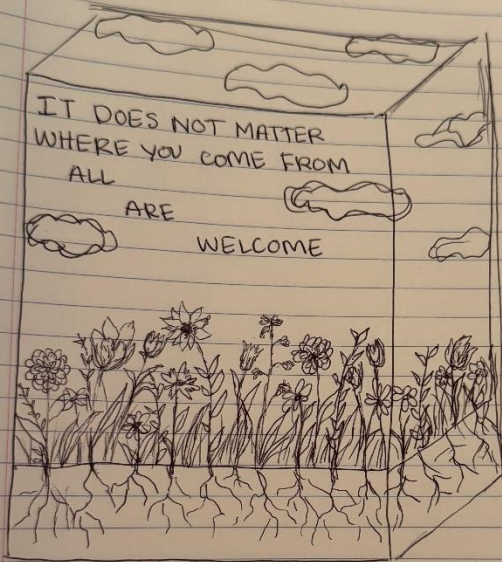 IT DOES NOT MATTER
WHERE YOU COME FROM
ALL
ARE
WELCOME